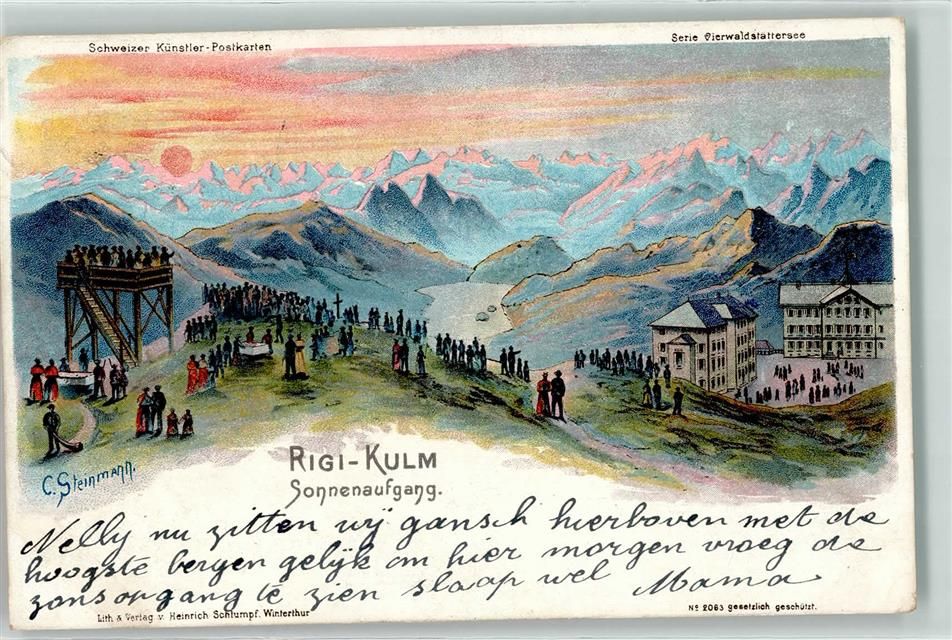 Schweizer Künstler-Postkarten
Serie Vierwaldstättersee
C. Steinmann.
RIGI-KULM
Sonnenaufgang.
Nelly nu zitten wij gansch hierboven met de
hoogste bergen gelijk om hier morgen vroeg de
zonsopgang te zien slaap wel Mama
Lith & Verlag v. Heinrich Schlumpf. Winterthur
Nº 2063 gesetzlich geschützt.